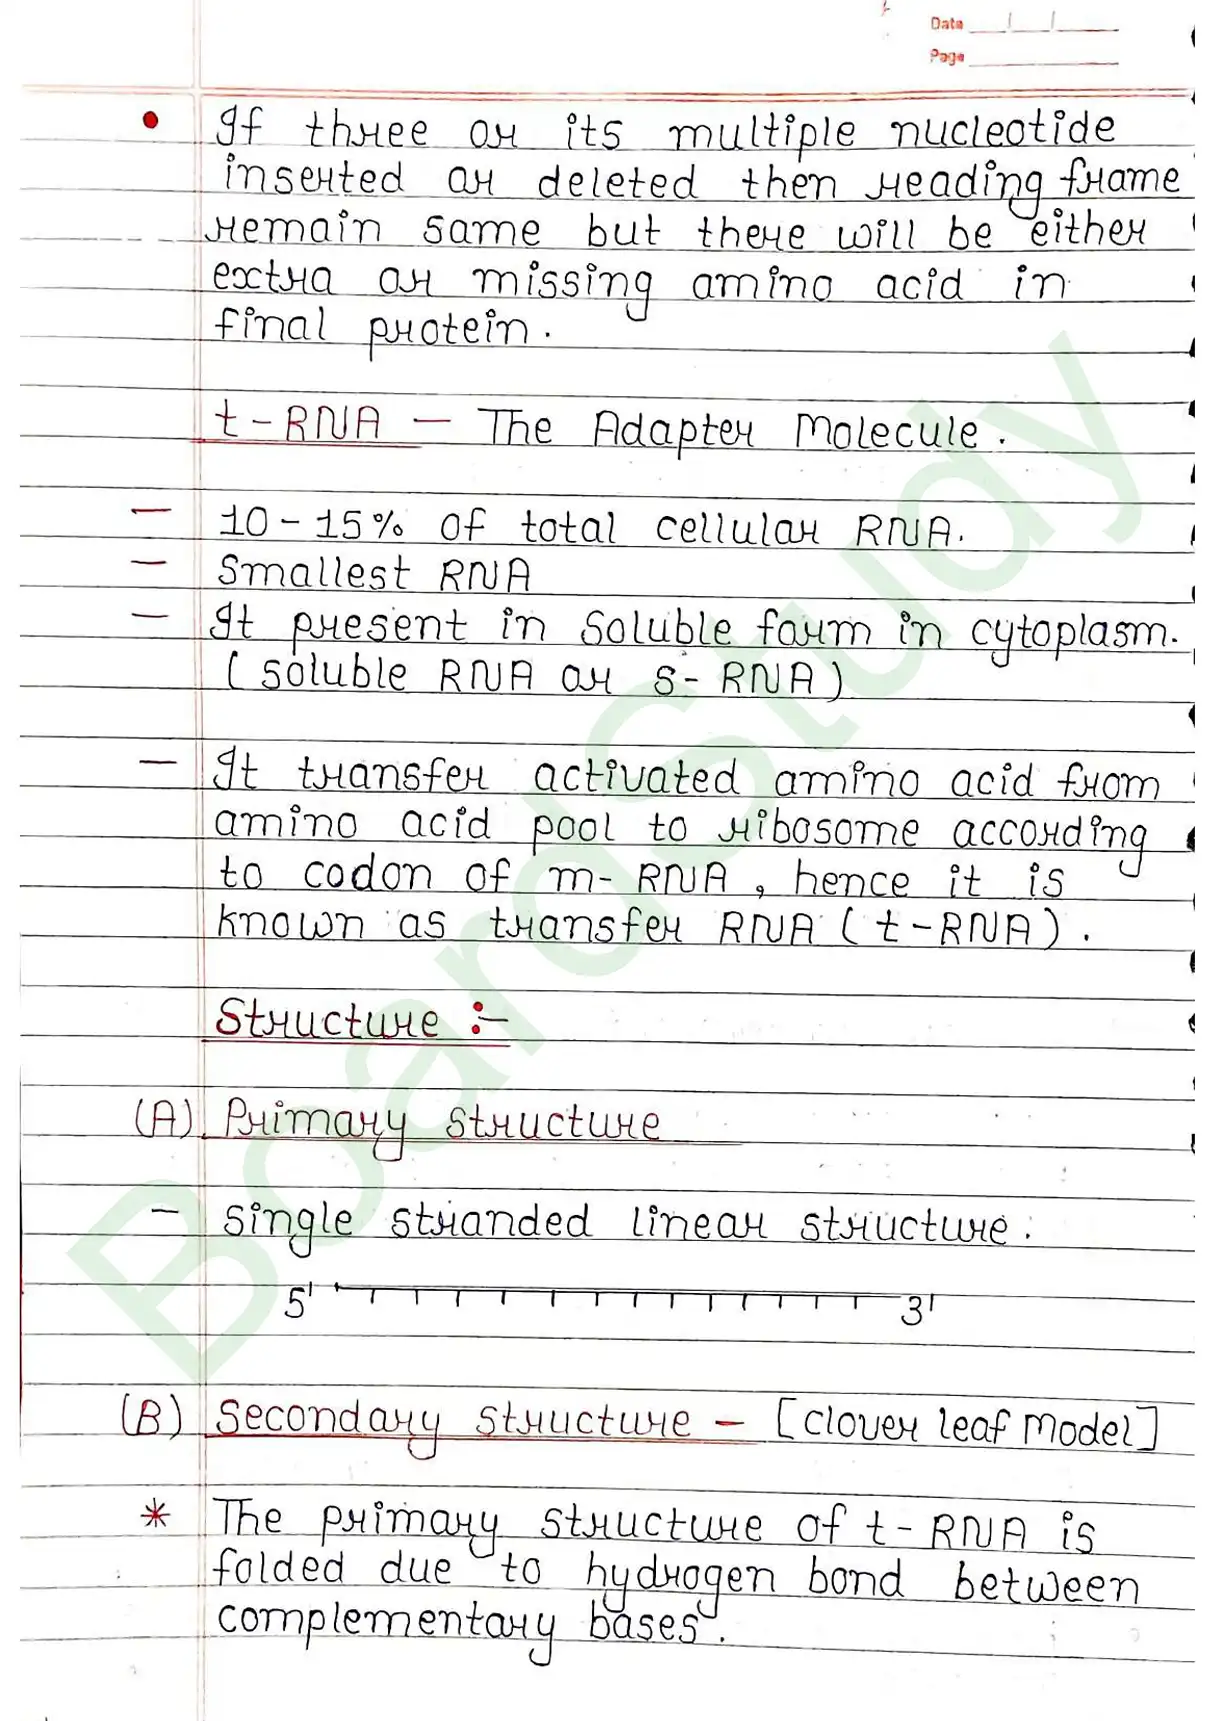 Date
Page
• If three or its multiple nucleotide
inserted or deleted then reading frame
remain same but there will be either
extra or missing amino acid in
final protein.
t-RNA — The Adapter Molecule.
— 10-15% of total cellular RNA.
— Smallest RNA
— It present in soluble form in cytoplasm.
(soluble RNA or s-RNA)
— It transfer activated amino acid from
amino acid pool to ribosome according
to codon of m-RNA, hence it is
known as transfer RNA (t-RNA).
Structure :-
(A) Primary structure
- single stranded linear structure.
5' 3'
(B) Secondary structure - [clover leaf Model]
* The primary structure of t-RNA is
folded due to hydrogen bond between
complementary bases.
BoardStudy